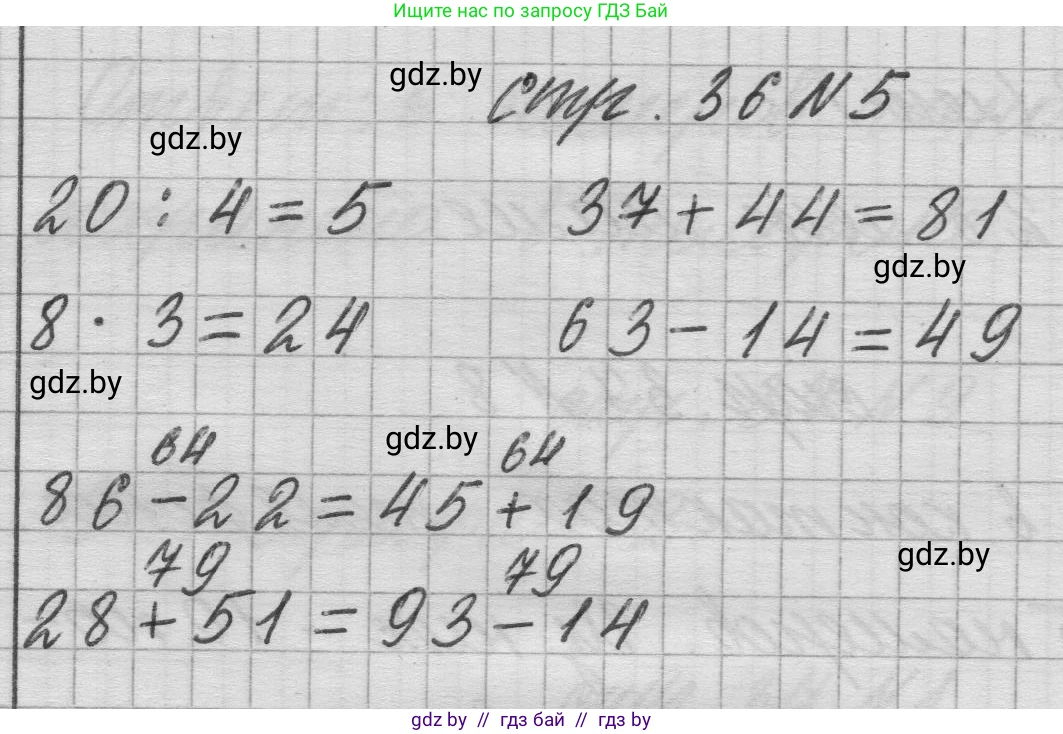 Ищите нас по запросу ГДЗ Бай
gdz.by стр. 36 N 5
gdz.by
20 : 4 = 5 37 + 44 = 81
gdz.by
8 · 3 = 24 63 - 14 = 49
gdz.by
64 gdz.by 64
86 - 22 = 45 + 19
79 79 gdz.by
28 + 51 = 93 - 14
gdz by // гдз бай // гдз by